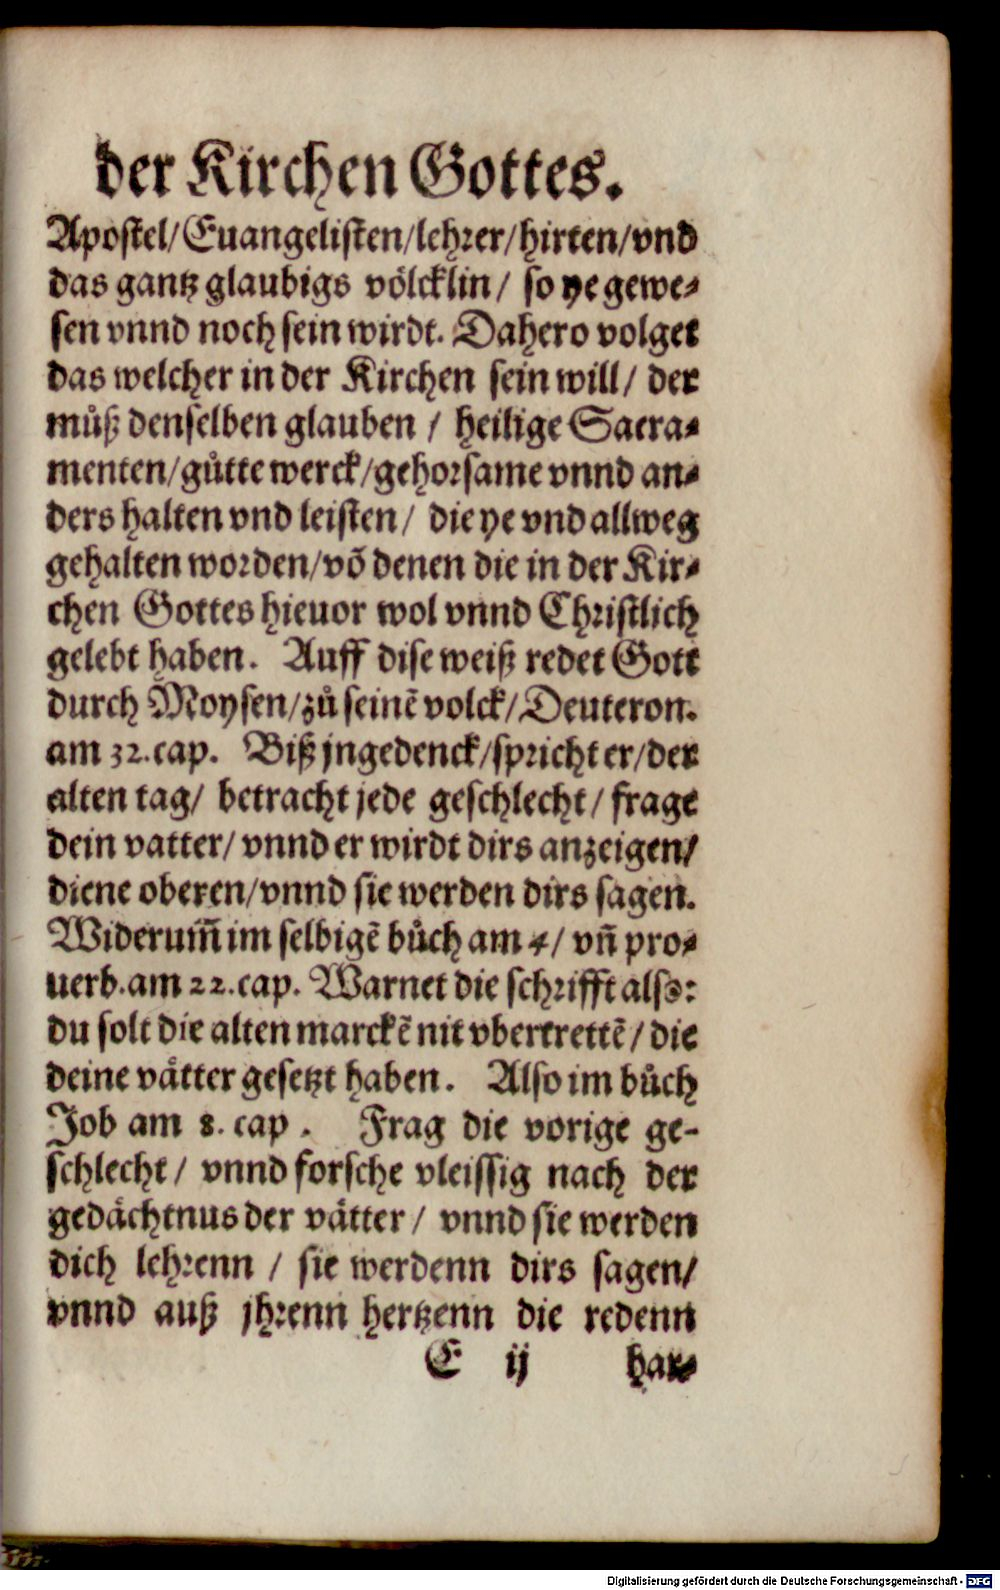 der Kirchen Gottes.
Apostel/Euangelisten/lehrer/hirten/vnd
das gantz glaubigs völcklin/ so ye gewe⸗
sen vnnd noch sein wirdt. Dahero volget
das welcher in der Kirchen sein will/ der
můß denselben glauben / heilige Sacra⸗
menten/gůtte werck/gehorsame vnnd an⸗
ders halten vnd leisten/ die ye vnd allweg
gehalten worden/võ denen die in der Kir⸗
chen Gottes hieuor wol vnnd Christlich
gelebt haben. Auff dise weiß redet Gott
durch Moysen/zů seinẽ volck/Deuteron.
am 32.cap. Biß jngedenck/spricht er/der
alten tag/ betracht jede geschlecht/ frage
dein vatter/ vnnd er wirdt dirs anzeigen/
diene oberen/vnnd sie werden dirs sagen.
Widerum̃ im selbigẽ bůch am 4/ vñ pro⸗
uerb.am 22.cap. Warnet die schrifft also:
du solt die alten marckẽ nit vbertrettẽ/ die
deine vätter gesetzt haben. Also im bůch
Job am 8. cap. Frag die vorige ge-
schlecht/ vnnd forsche vleissig nach der
gedächtnus der vätter/ vnnd sie werden
dich lehrenn / sie werdenn dirs sagen/
vnnd auß jhrenn hertzenn die redenn
E ij har⸗
Digitalisierung gefördert durch die Deutsche Forschungsgemeinschaft - DFG